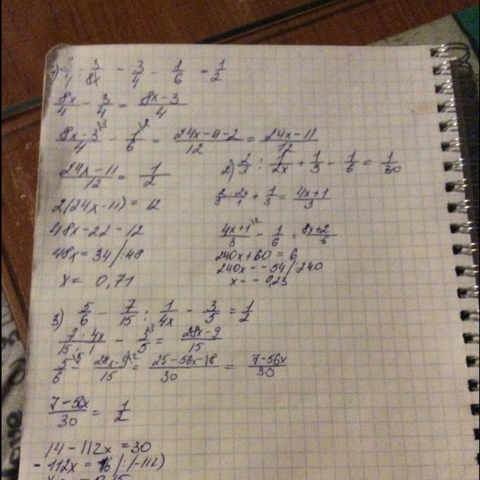 1) 3/4 : 3/8x - 3/4 - 1/6 = 1/2
8x/4 - 3/4 = 8x-3/4
8x-3/4 - 1/6 = 24x-9-2/12 = 24x-11/12
24x-11/12 = 1/2
2(24x-11) = 12
48x-22-12
48x = 34 /:48
x = 0,71
2) 2/3 : 1/2x + 1/3 - 1/6 = 1/30
2/3 · 2x/1 + 1/3 = 4x+1/3
4x+1/3 - 1/6 = 8x+2/6
240x+60 = 6
240x = -54 /:240
x = -0,23
3) 5/6 - 7/15 : 1/4x - 3/5 = 1/2
7·4x/15·1 - 3/5 = 28x-9/15
5/6 - 28x-9/15 = 25-56x-18/30 = 7-56x/30
7-56x/30 = 1/2
14-112x = 30
-112x = 16 /:(-112)